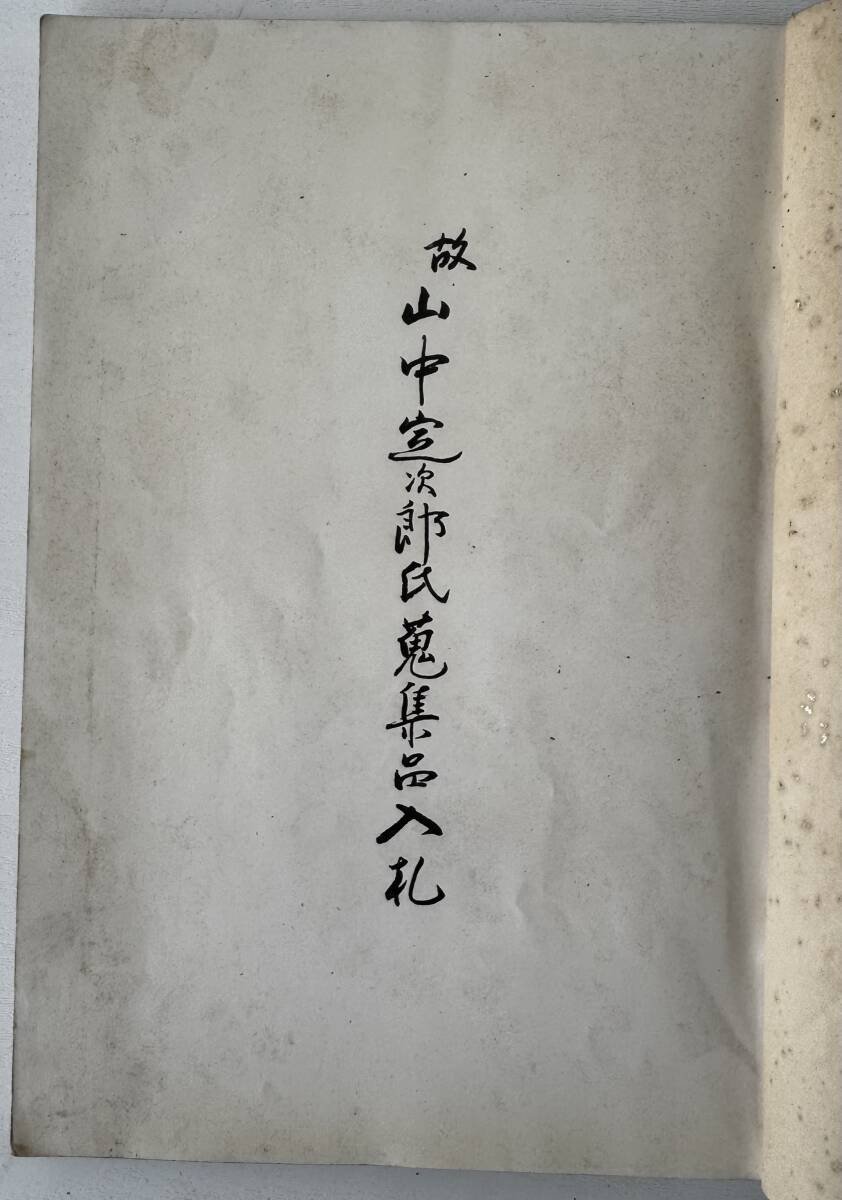 故山中定次郎氏蒐集品入札